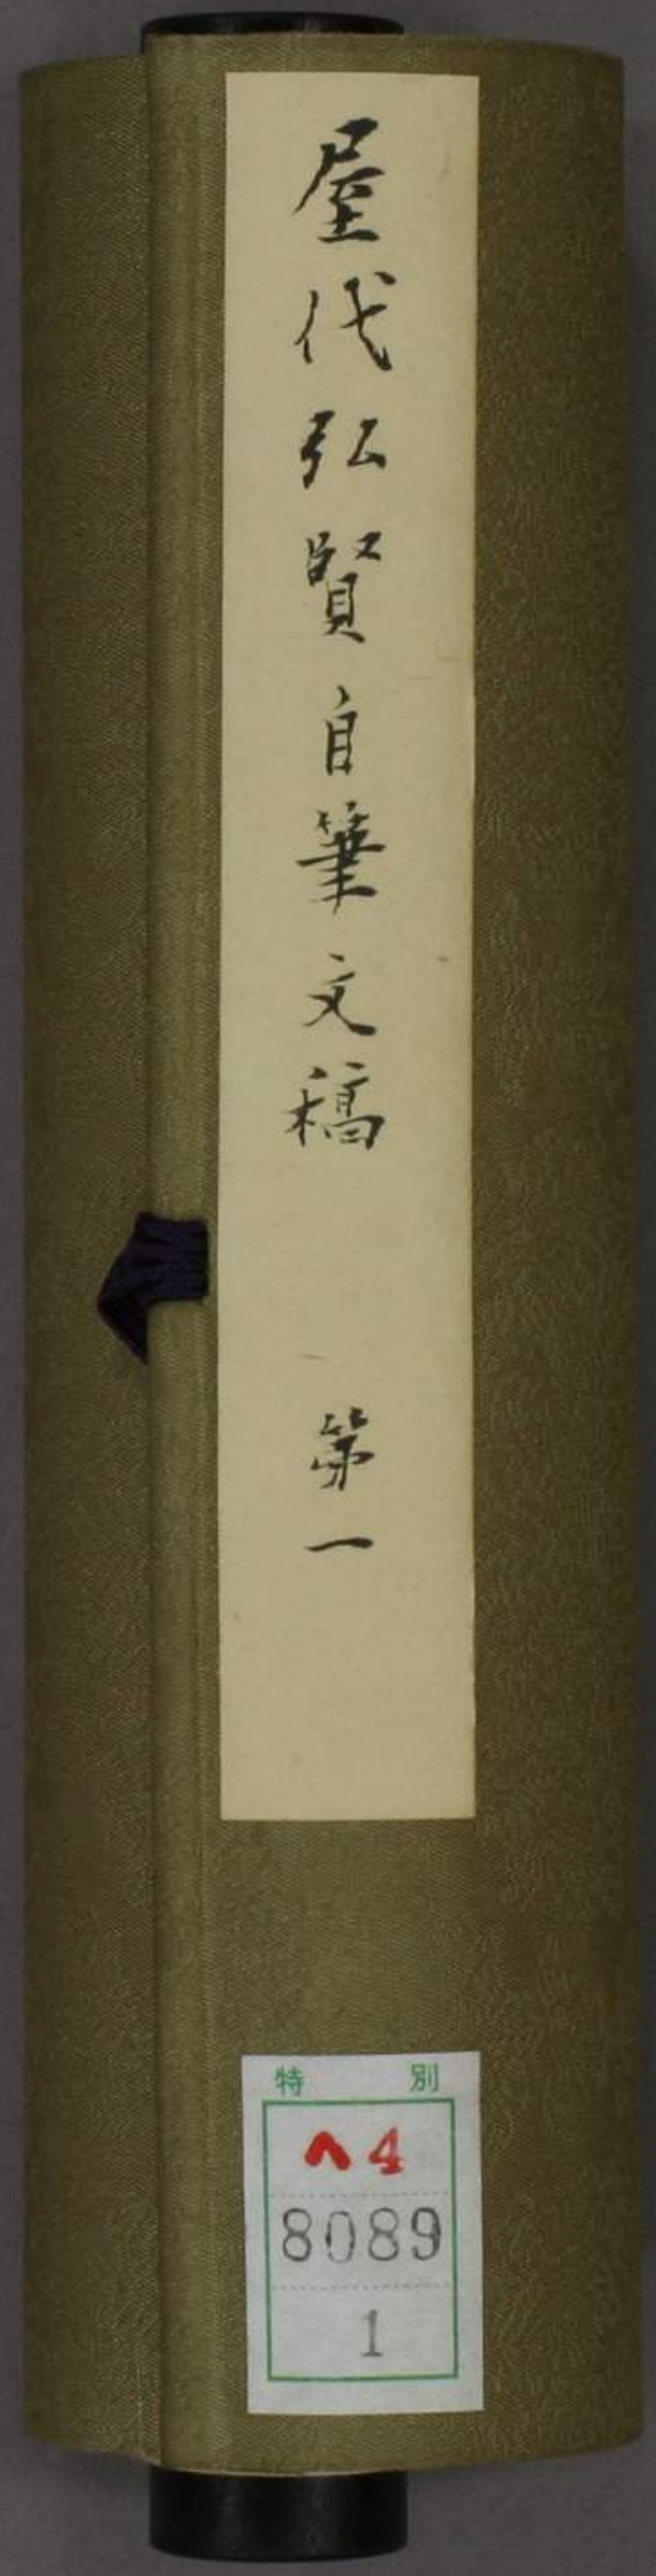 屋代弘賢自筆文稿 第一
特別
ヘ4
8089
1